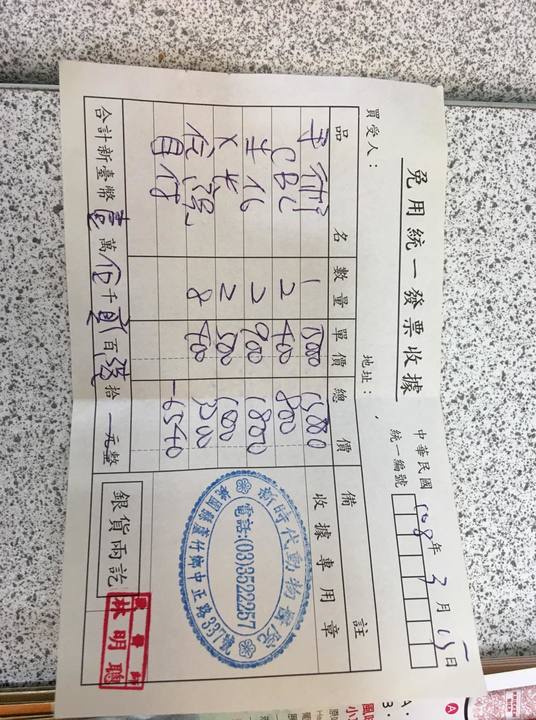 免用統一發票收據
中華民國108年3月日
統一編號
買受人： 地址：
品名 數量 單價 總價 備註
手術 1 15000 15000
CBC 2 400 800
生化 2 900 1800
X光 2 500 1000
住院 8 400 3200
自付 -6540
合計新臺幣壹萬伍千貳百陸拾一元整
收據專用章
新時代動物醫院
電話:(03)3522257
桃園縣蘆竹鄉中正路331號
銀貨兩訖
獸醫師
林明聰